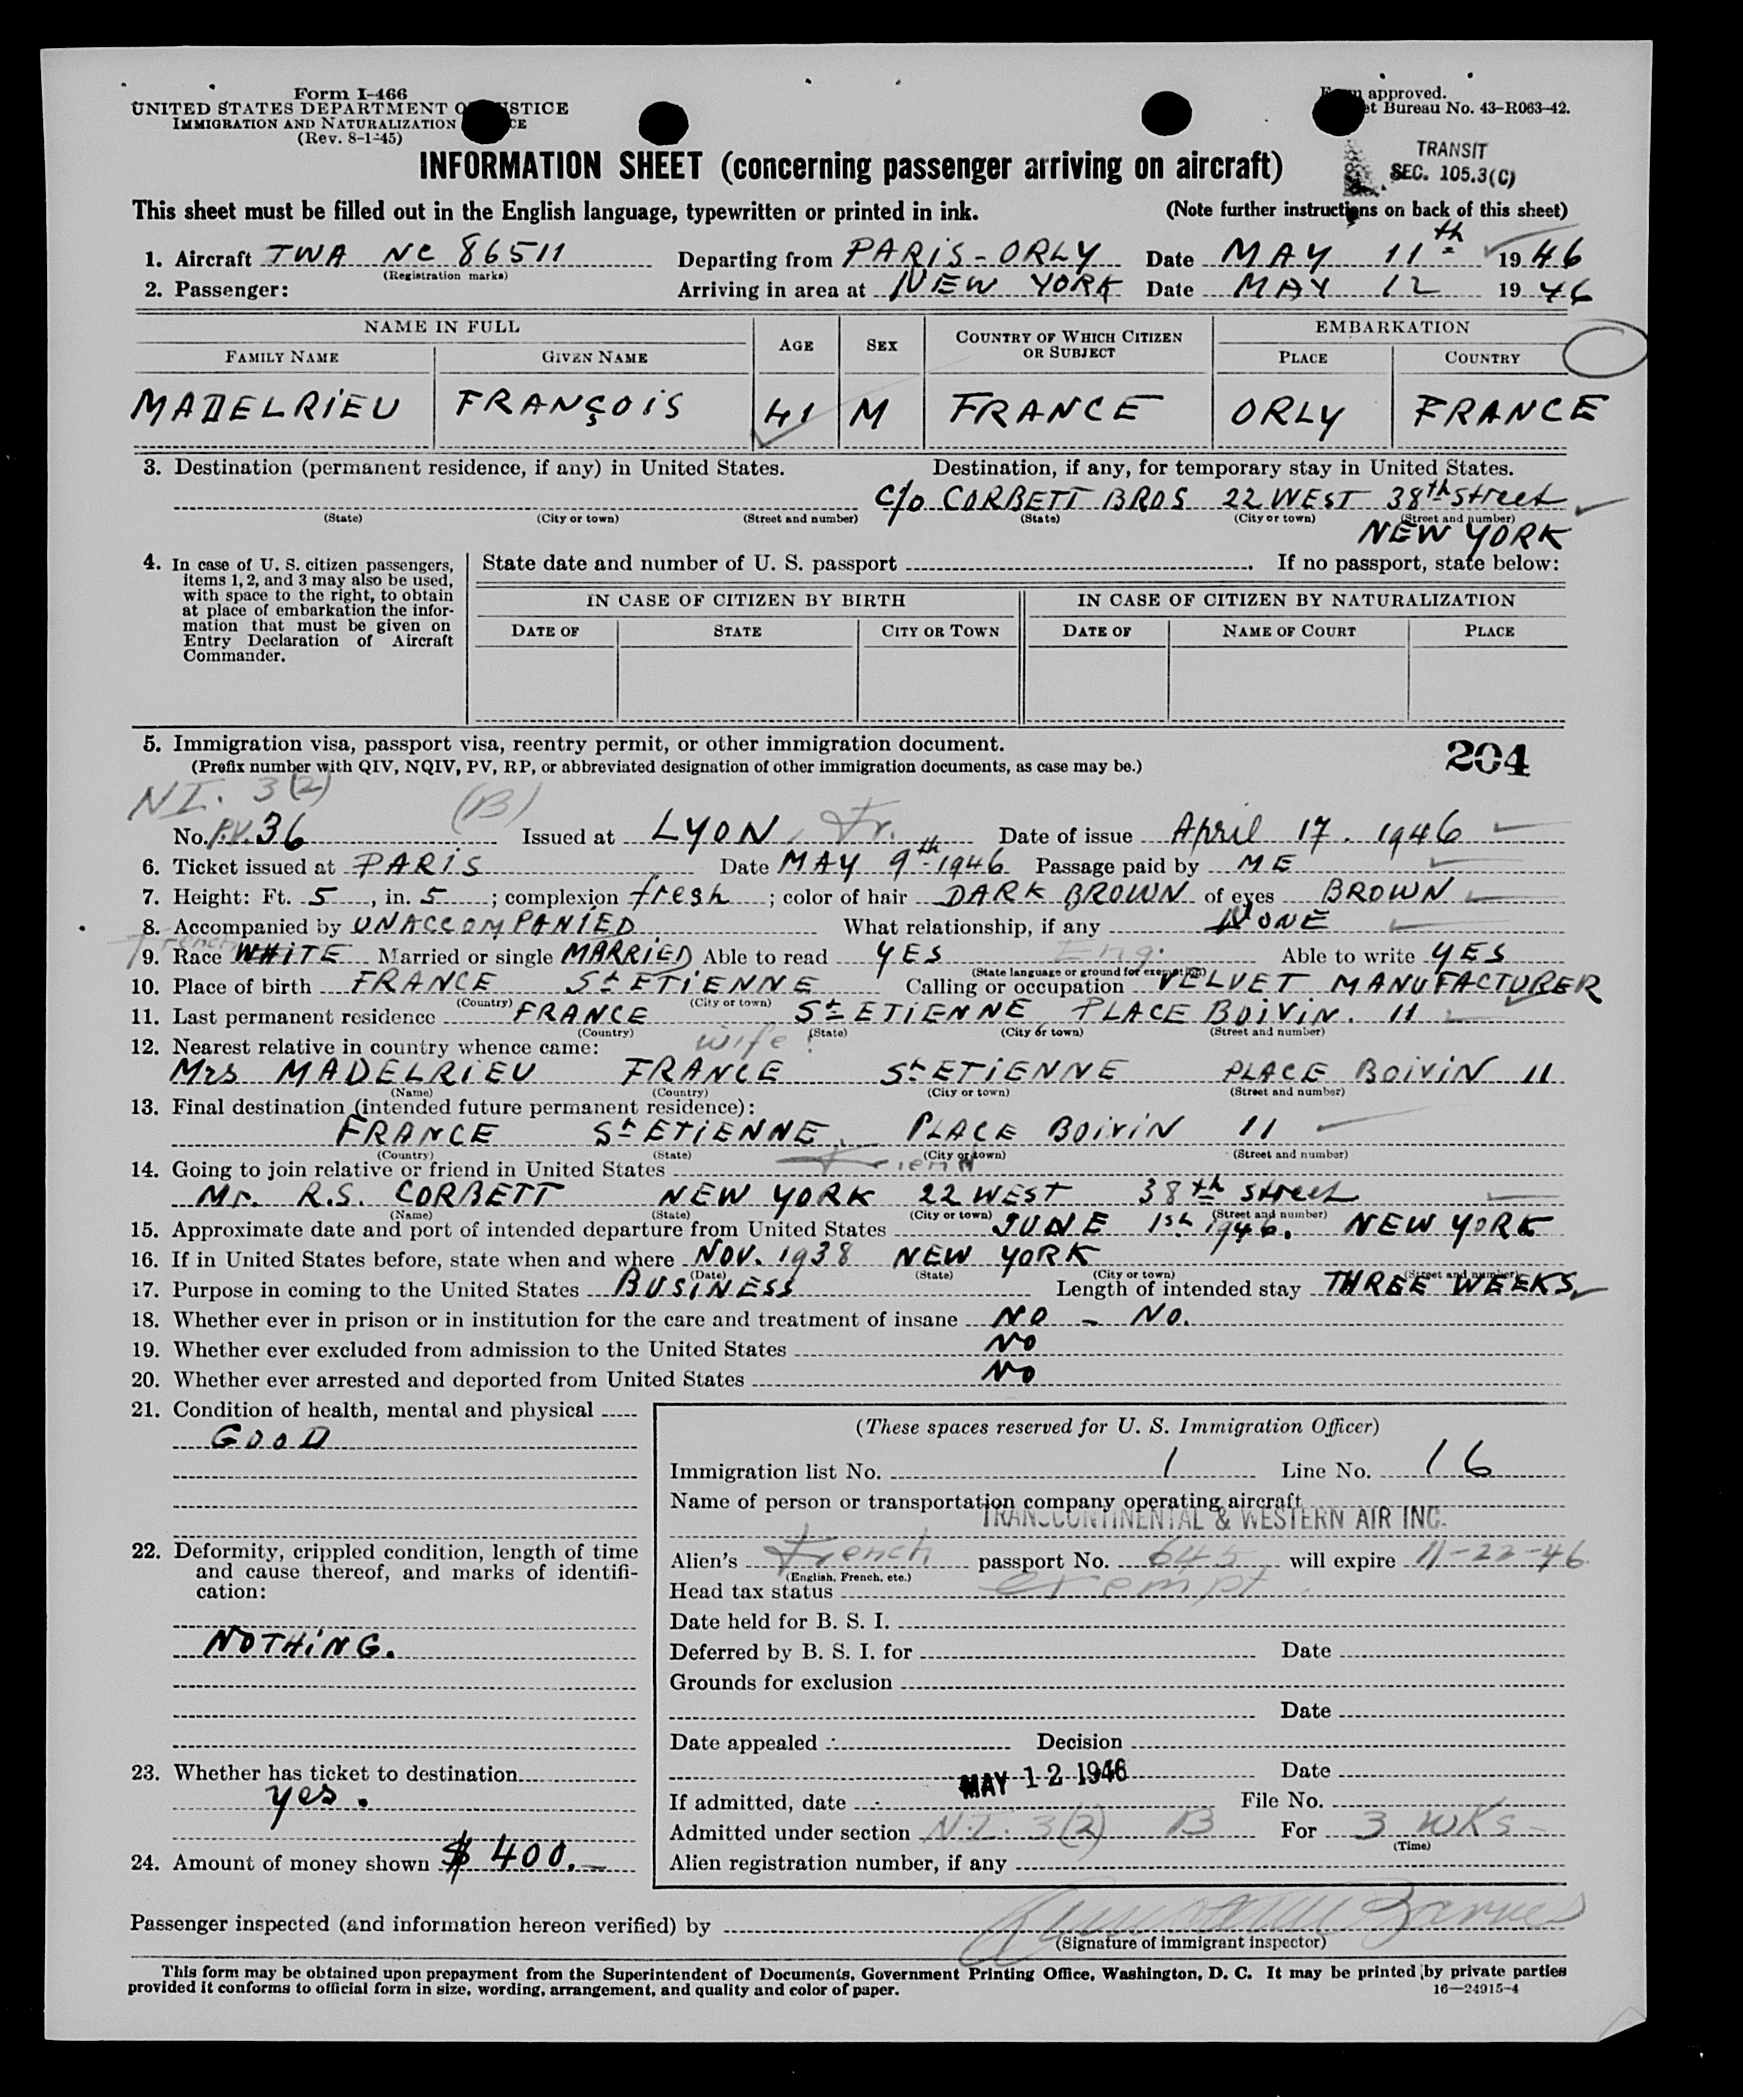 Form I-466
UNITED STATES DEPARTMENT OF JUSTICE
IMMIGRATION AND NATURALIZATION
(Rev. 8-1-45)
approved.
Bureau No. 43-R063-42.
TRANSIT
SEC. 105.3(C)
INFORMATION SHEET (concerning passenger arriving on aircraft)
This sheet must be filled out in the English language, typewritten or printed in ink. (Note further instructions on back of this sheet)
1. Aircraft TWA NC 86511 Departing from PARIS - ORLY Date MAY 11th 1946
(Registration marks)
2. Passenger: Arriving in area at NEW YORK Date MAY 12 1946
NAME IN FULL AGE SEX COUNTRY OF WHICH CITIZEN OR SUBJECT EMBARKATION
FAMILY NAME GIVEN NAME PLACE COUNTRY
MADELRIEU FRANÇOIS 41 M FRANCE ORLY FRANCE
3. Destination (permanent residence, if any) in United States. Destination, if any, for temporary stay in United States.
c/o CORBETT BROS 22 WEST 38th Street
(State) (City or town) (Street and number) (State) (City or town) (Street and number)
NEW YORK
4. In case of U. S. citizen passengers, items 1, 2, and 3 may also be used, with space to the right, to obtain at place of embarkation the information that must be given on Entry Declaration of Aircraft Commander.
State date and number of U. S. passport . If no passport, state below:
IN CASE OF CITIZEN BY BIRTH IN CASE OF CITIZEN BY NATURALIZATION
DATE OF STATE CITY OR TOWN DATE OF NAME OF COURT PLACE
5. Immigration visa, passport visa, reentry permit, or other immigration document. 204
(Prefix number with QIV, NQIV, PV, RP, or abbreviated designation of other immigration documents, as case may be.)
NI. 3(2) (B)
No. P.V. 36 Issued at LYON, Fr. Date of issue April 17. 1946
6. Ticket issued at PARIS Date MAY 9th 1946 Passage paid by ME
7. Height: Ft. 5, in. 5; complexion fresh; color of hair DARK BROWN of eyes BROWN
8. Accompanied by UNACCOMPANIED What relationship, if any NONE
French
9. Race WHITE Married or single MARRIED Able to read YES Eng. Able to write YES
(State language or ground for exemption)
10. Place of birth FRANCE St ETIENNE Calling or occupation VELVET MANUFACTURER
(Country) (City or town)
11. Last permanent residence FRANCE St ETIENNE PLACE BOIVIN. 11
(Country) (State) (City or town) (Street and number)
12. Nearest relative in country whence came: wife
Mrs MADELRIEU FRANCE St ETIENNE PLACE BOIVIN 11
(Name) (Country) (City or town) (Street and number)
13. Final destination (intended future permanent residence):
FRANCE St ETIENNE. PLACE BOIVIN 11
(Country) (State) (City or town) (Street and number)
14. Going to join relative or friend in United States Friend
Mr. R.S. CORBETT NEW YORK 22 WEST 38th street
(Name) (State) (City or town) (Street and number)
15. Approximate date and port of intended departure from United States JUNE 1st 1946. NEW YORK
16. If in United States before, state when and where NOV. 1938 NEW YORK
(Date) (State) (City or town) (Street and number)
17. Purpose in coming to the United States BUSINESS Length of intended stay THREE WEEKS.
18. Whether ever in prison or in institution for the care and treatment of insane NO - NO.
19. Whether ever excluded from admission to the United States NO
20. Whether ever arrested and deported from United States NO
21. Condition of health, mental and physical
GOOD
22. Deformity, crippled condition, length of time and cause thereof, and marks of identification:
NOTHING.
23. Whether has ticket to destination
yes.
24. Amount of money shown $ 400.-
(These spaces reserved for U. S. Immigration Officer)
Immigration list No. 1 Line No. 16
Name of person or transportation company operating aircraft
TRANSCONTINENTAL & WESTERN AIR INC.
Alien's French passport No. 645 will expire 11-22-46
(English, French, etc.)
Head tax status exempt
Date held for B. S. I.
Deferred by B. S. I. for Date
Grounds for exclusion
Date
Date appealed Decision
Date
If admitted, date MAY 12 1946 File No.
Admitted under section N.I. 3(2) B For 3 WKS
(Time)
Alien registration number, if any
Passenger inspected (and information hereon verified) by Barnes
(Signature of immigrant inspector)
This form may be obtained upon prepayment from the Superintendent of Documents, Government Printing Office, Washington, D. C. It may be printed by private parties
provided it conforms to official form in size, wording, arrangement, and quality and color of paper. 16—24915-4